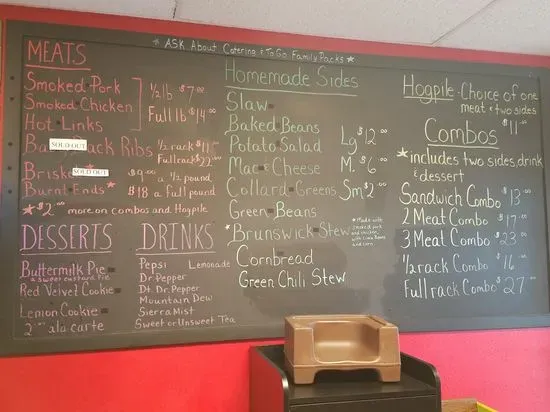 * ASK About Catering & To Go Family Packs *
MEATS
Smoked Pork
Smoked Chicken
Hot Links
1/2 lb $7.00
Full lb $14.00
Ba Back Ribs
SOLD OUT
1/2 rack $11.5
Full rack $22.00
Brisket
SOLD OUT
$9.00 a 1/2 pound
Burnt Ends *
$18 a full pound
*$2.00 more on combos and Hogpile
DESSERTS
Buttermilk Pie
a sweet custard Pie
Red Velvet Cookie
Lemon Cookie
2.00 ala carte
DRINKS
Pepsi Lemonade
Dr. Pepper
Dt. Dr. Pepper
Mountain Dew
Sierra Mist
Sweet or Unsweet Tea
Homemade Sides
Slaw
Baked Beans
Potato Salad
Mac & Cheese
Collard Greens
Green Beans
*Brunswick Stew
*Made with smoked pork and chicken, with Lima Beans and corn.
Cornbread
Green Chili Stew
Lg $12.00
M. $6.00
Sm $2.00
Hogpile - Choice of one
meat & two sides
$11.00
Combos
*includes two sides, drink
& dessert
Sandwich Combo $13.00
2 Meat Combo $17.00
3 Meat Combo $23.00
1/2 rack Combo $16.00
Full rack Combo $27.00